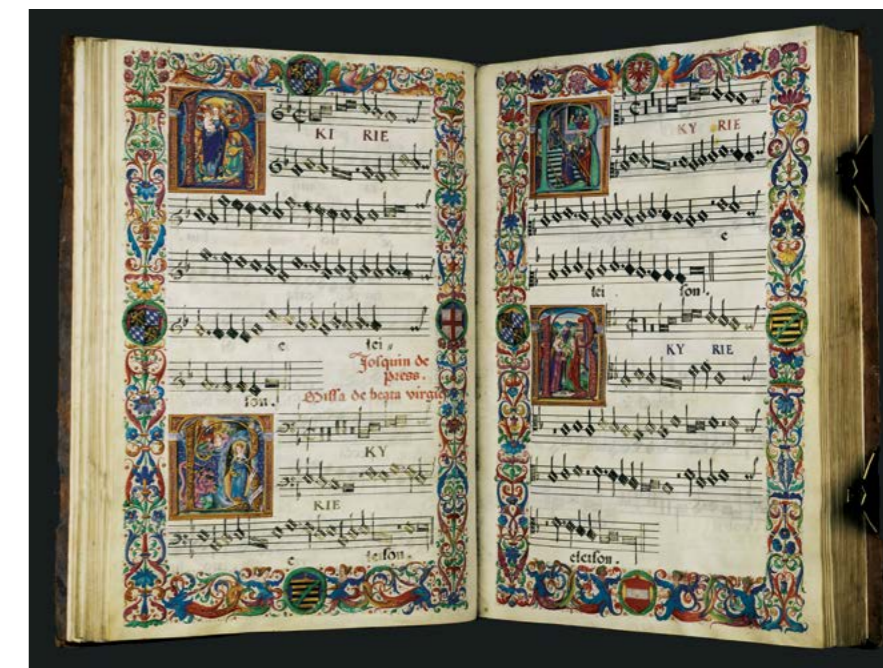 KI RIE
e
lei
son.
Josquin de
press.
Missa de beata virgie
KY
RIE
e leison.
KY RIE
e
lei son.
KY RIE
eleison.